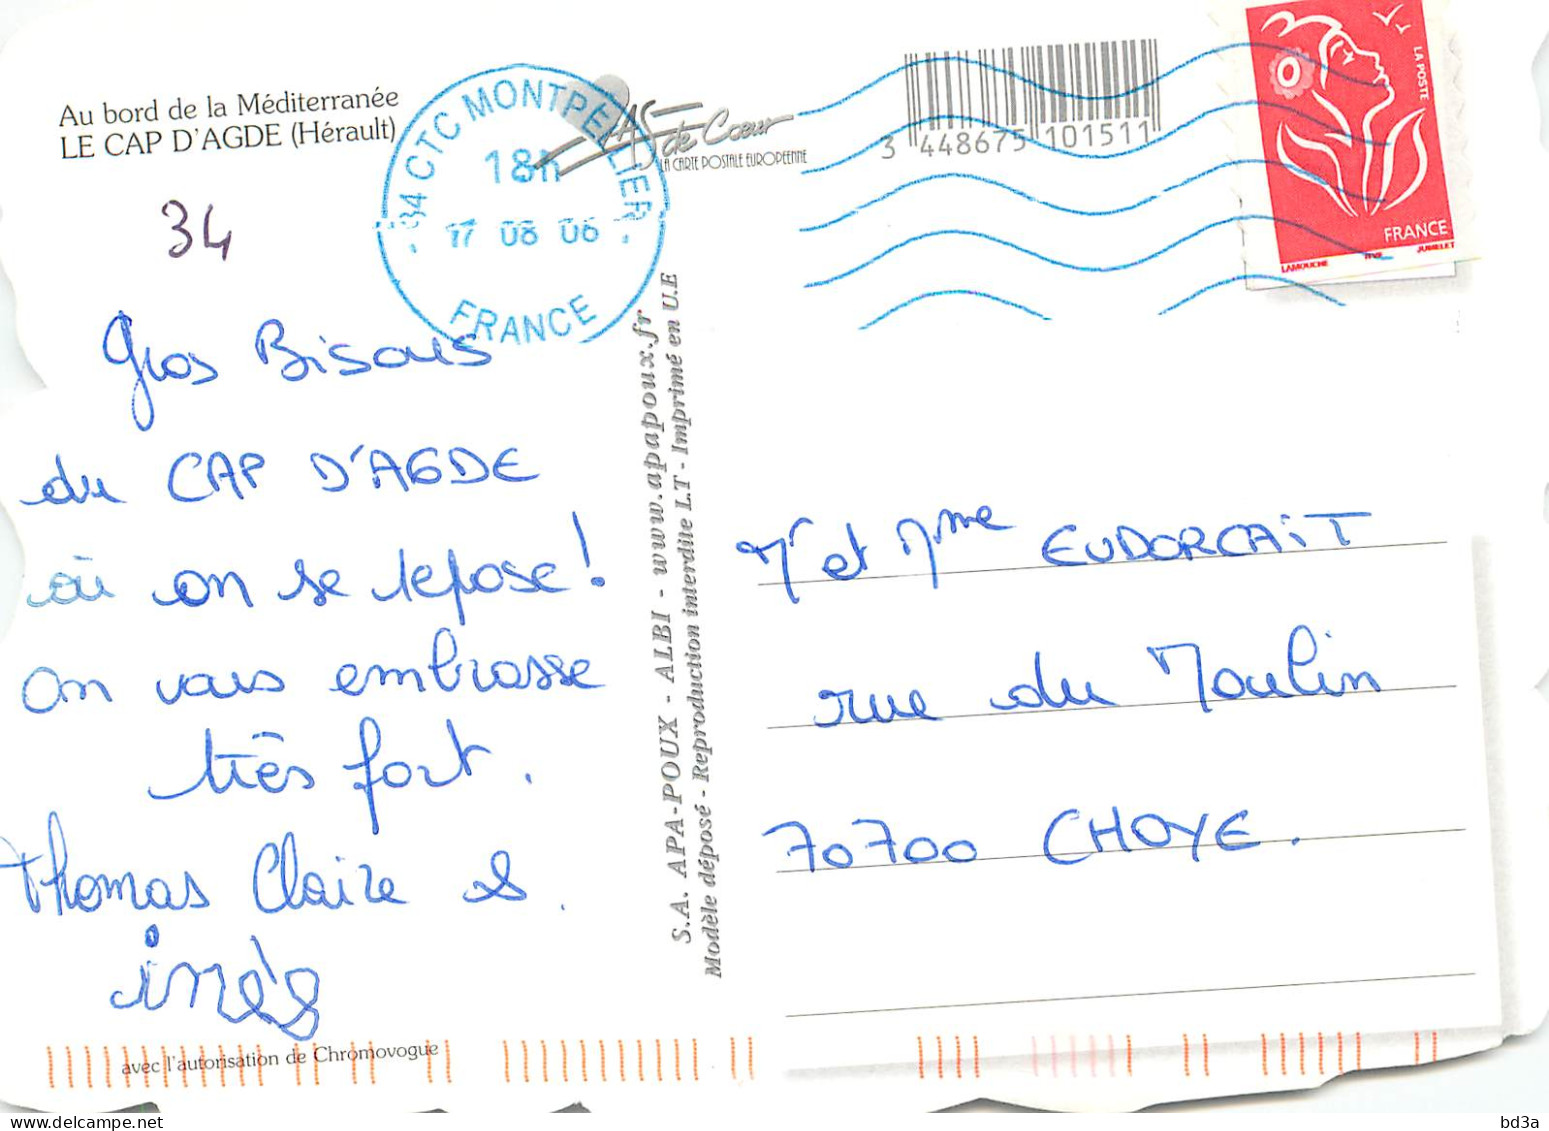 Au bord de la Méditerranée
LE CAP D'AGDE (Hérault)
34
34 CTC MONTPELLIER
18H
17 08 06
FRANCE
AS de Coeur
LA CARTE POSTALE EUROPEENNE
3 448675 101511
LA POSTE
FRANCE
LAMOUCHE ITVF JUMELET
Gros Bisous
du CAP D'AGDE
où on se repose!
On vous embrasse
très fort.
Thomas Claire &
inès
S.A. APA-POUX - ALBI - www.apapoux.fr
Modèle déposé - Reproduction interdite L.T - Imprimé en U.E
Mr et Mme EUDORCAIT
rue du Moulin
70700 CHOYE.
avec l'autorisation de Chromovogue
bd3a